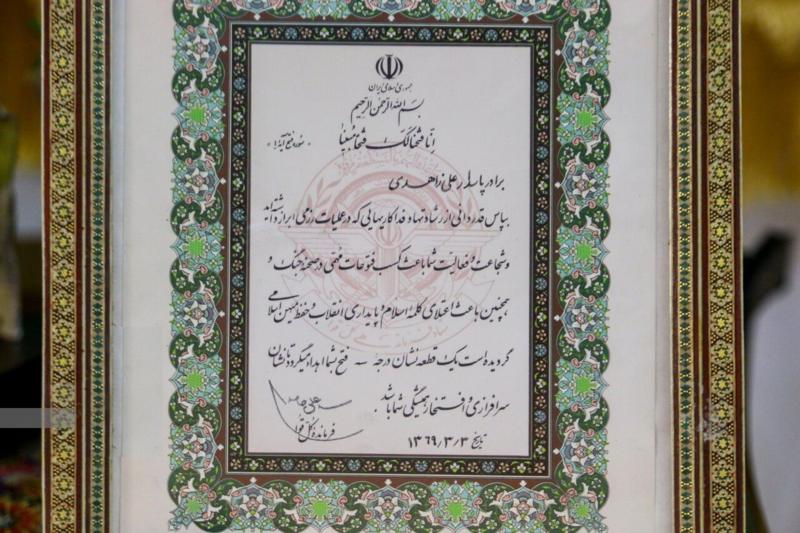 جمهوری اسلامی ایران
بسم الله الرحمن الرحیم
انا فتحنا لک فتحا مبینا «سوره فتح آیه ۱»
برادر پاسدار علی زاهدی
بپاس قدردانی از رشادتها و فداکاریهایی که در عملیات رزمی ابراز داشته‌اید
و شجاعت و فعالیت شما باعث کسب فتوحات مهمی در صحنه جنگ و
همچنین باعث اعتلای کلمه اسلام و پایداری انقلاب و حفظ میهن اسلامی
گردیده است یک قطعه نشان درجه فتح بشما اهداء میگردد تا نشان
سرافرازی و افتخار همیشگی شما باشد
فرمانده کل قوا
تاریخ ۱۳۶۹/۳/۳